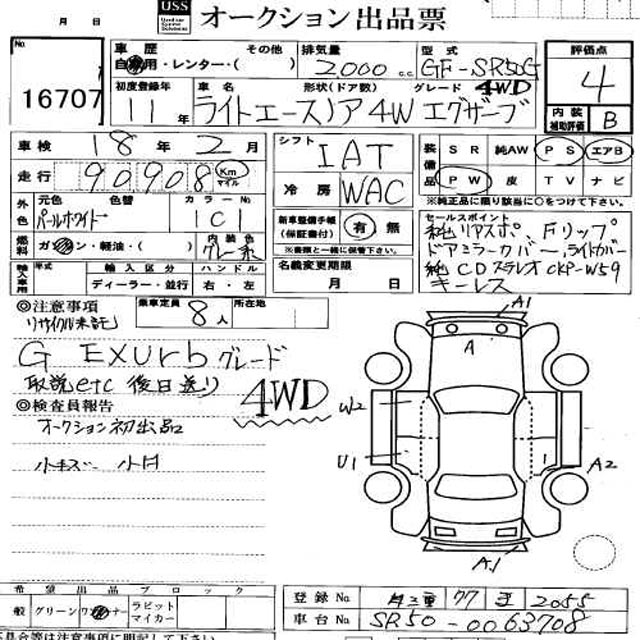 USS
オークション出品票
月 日
No.
16707
車歴 その他
自家用・レンタ・( )
排気量
2000 cc
型式
GF-SR50G
評価点
4
初度登録年
11年
車名 形状(ドア数) グレード 4WD
ライトエースノア 4W エグザーブ
内装補助評価 B
車検 18年 2月
シフト IAT
装備品 SR 純AW PS エアB
PW 皮 TV ナビ
※純正品に限り該当に○をつけて下さい。
走行 90908 Km マイル
冷房 WAC
外色 元色 色替 カラーNo
パールホワイト 1C1
新車整備手帳(保証書付) 有 無
※書類と一緒に保管下さい。
セールスポイント
純リアスポ、Fリップ
ドアミラーカバー,ライトカバー
純CDステレオCKP-W59
キーレス
燃料 ガソリン・軽油・( )
内装色 グレー系
名義変更期限
月 日
輸入車用 年式 輸入区分 ハンドル
ディーラー・並行 右・左
◎注意事項
リサイクル未託
乗車定員 8人
所在地
G EXURB グレード
取説etc 後日送り 4WD
◎検査員報告
オークション初出品
小キズ 小凹
A1
A
W2
U1
1
A2
A1
希望出品ブロック
一般 グリーン ワンオーナー ラビットマイカー
登録No. 三重 77 2055
車台No. SR50-0063708